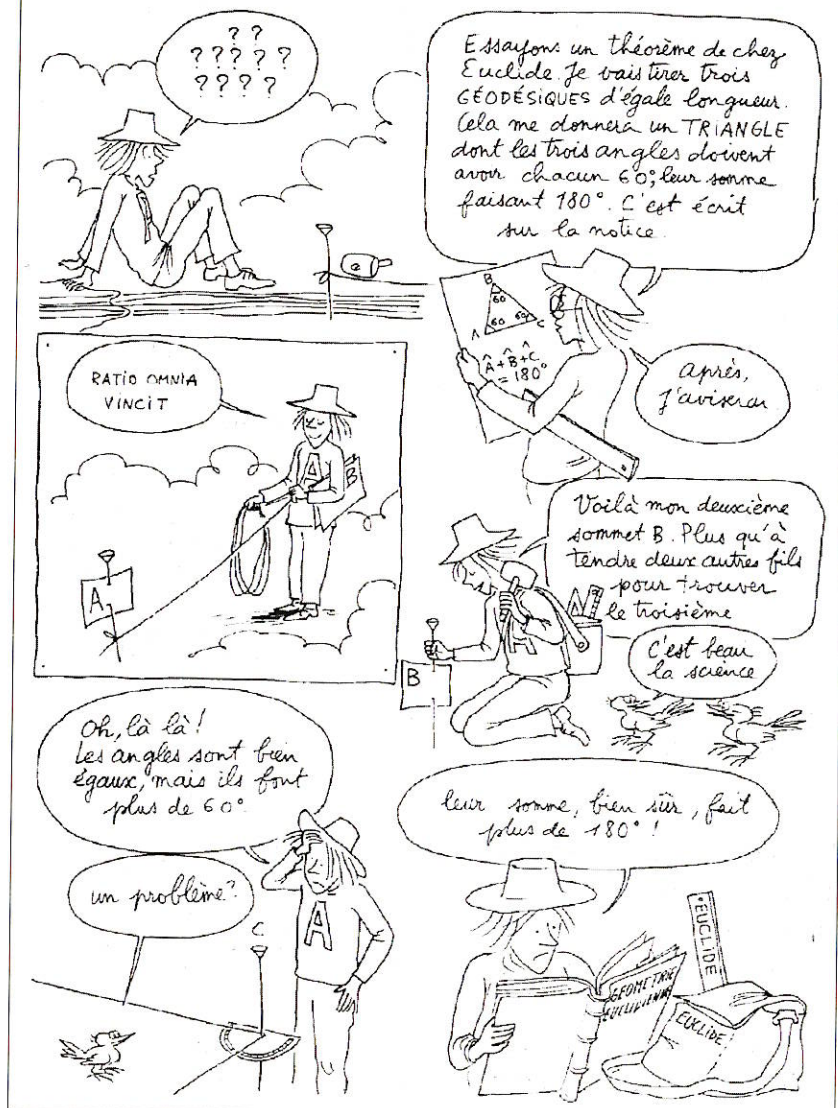 ? ?
? ? ? ? ?
? ? ? ?
Essayons un théorème de chez
Euclide. Je vais tirer trois
GÉODÉSIQUES d'égale longueur.
Cela me donnera un TRIANGLE
dont les trois angles doivent
avoir chacun 60°; leur somme
faisant 180°. C'est écrit
sur la notice.
B
60
60
60
A
C
Â+B̂+Ĉ
= 180°
Après,
j'aviserai
RATIO OMNIA
VINCIT
A
B
A
Voilà mon deuxième
sommet B. Plus qu'à
tendre deux autres fils
pour trouver
le troisième
A
B
C'est beau
la science
Oh, là là!
Les angles sont bien
égaux, mais ils font
plus de 60°.
un problème?
C
A
leur somme, bien sûr, fait
plus de 180°!
EUCLIDE
GEOMETRIE
EUCLIDIENNE
EUCLIDE